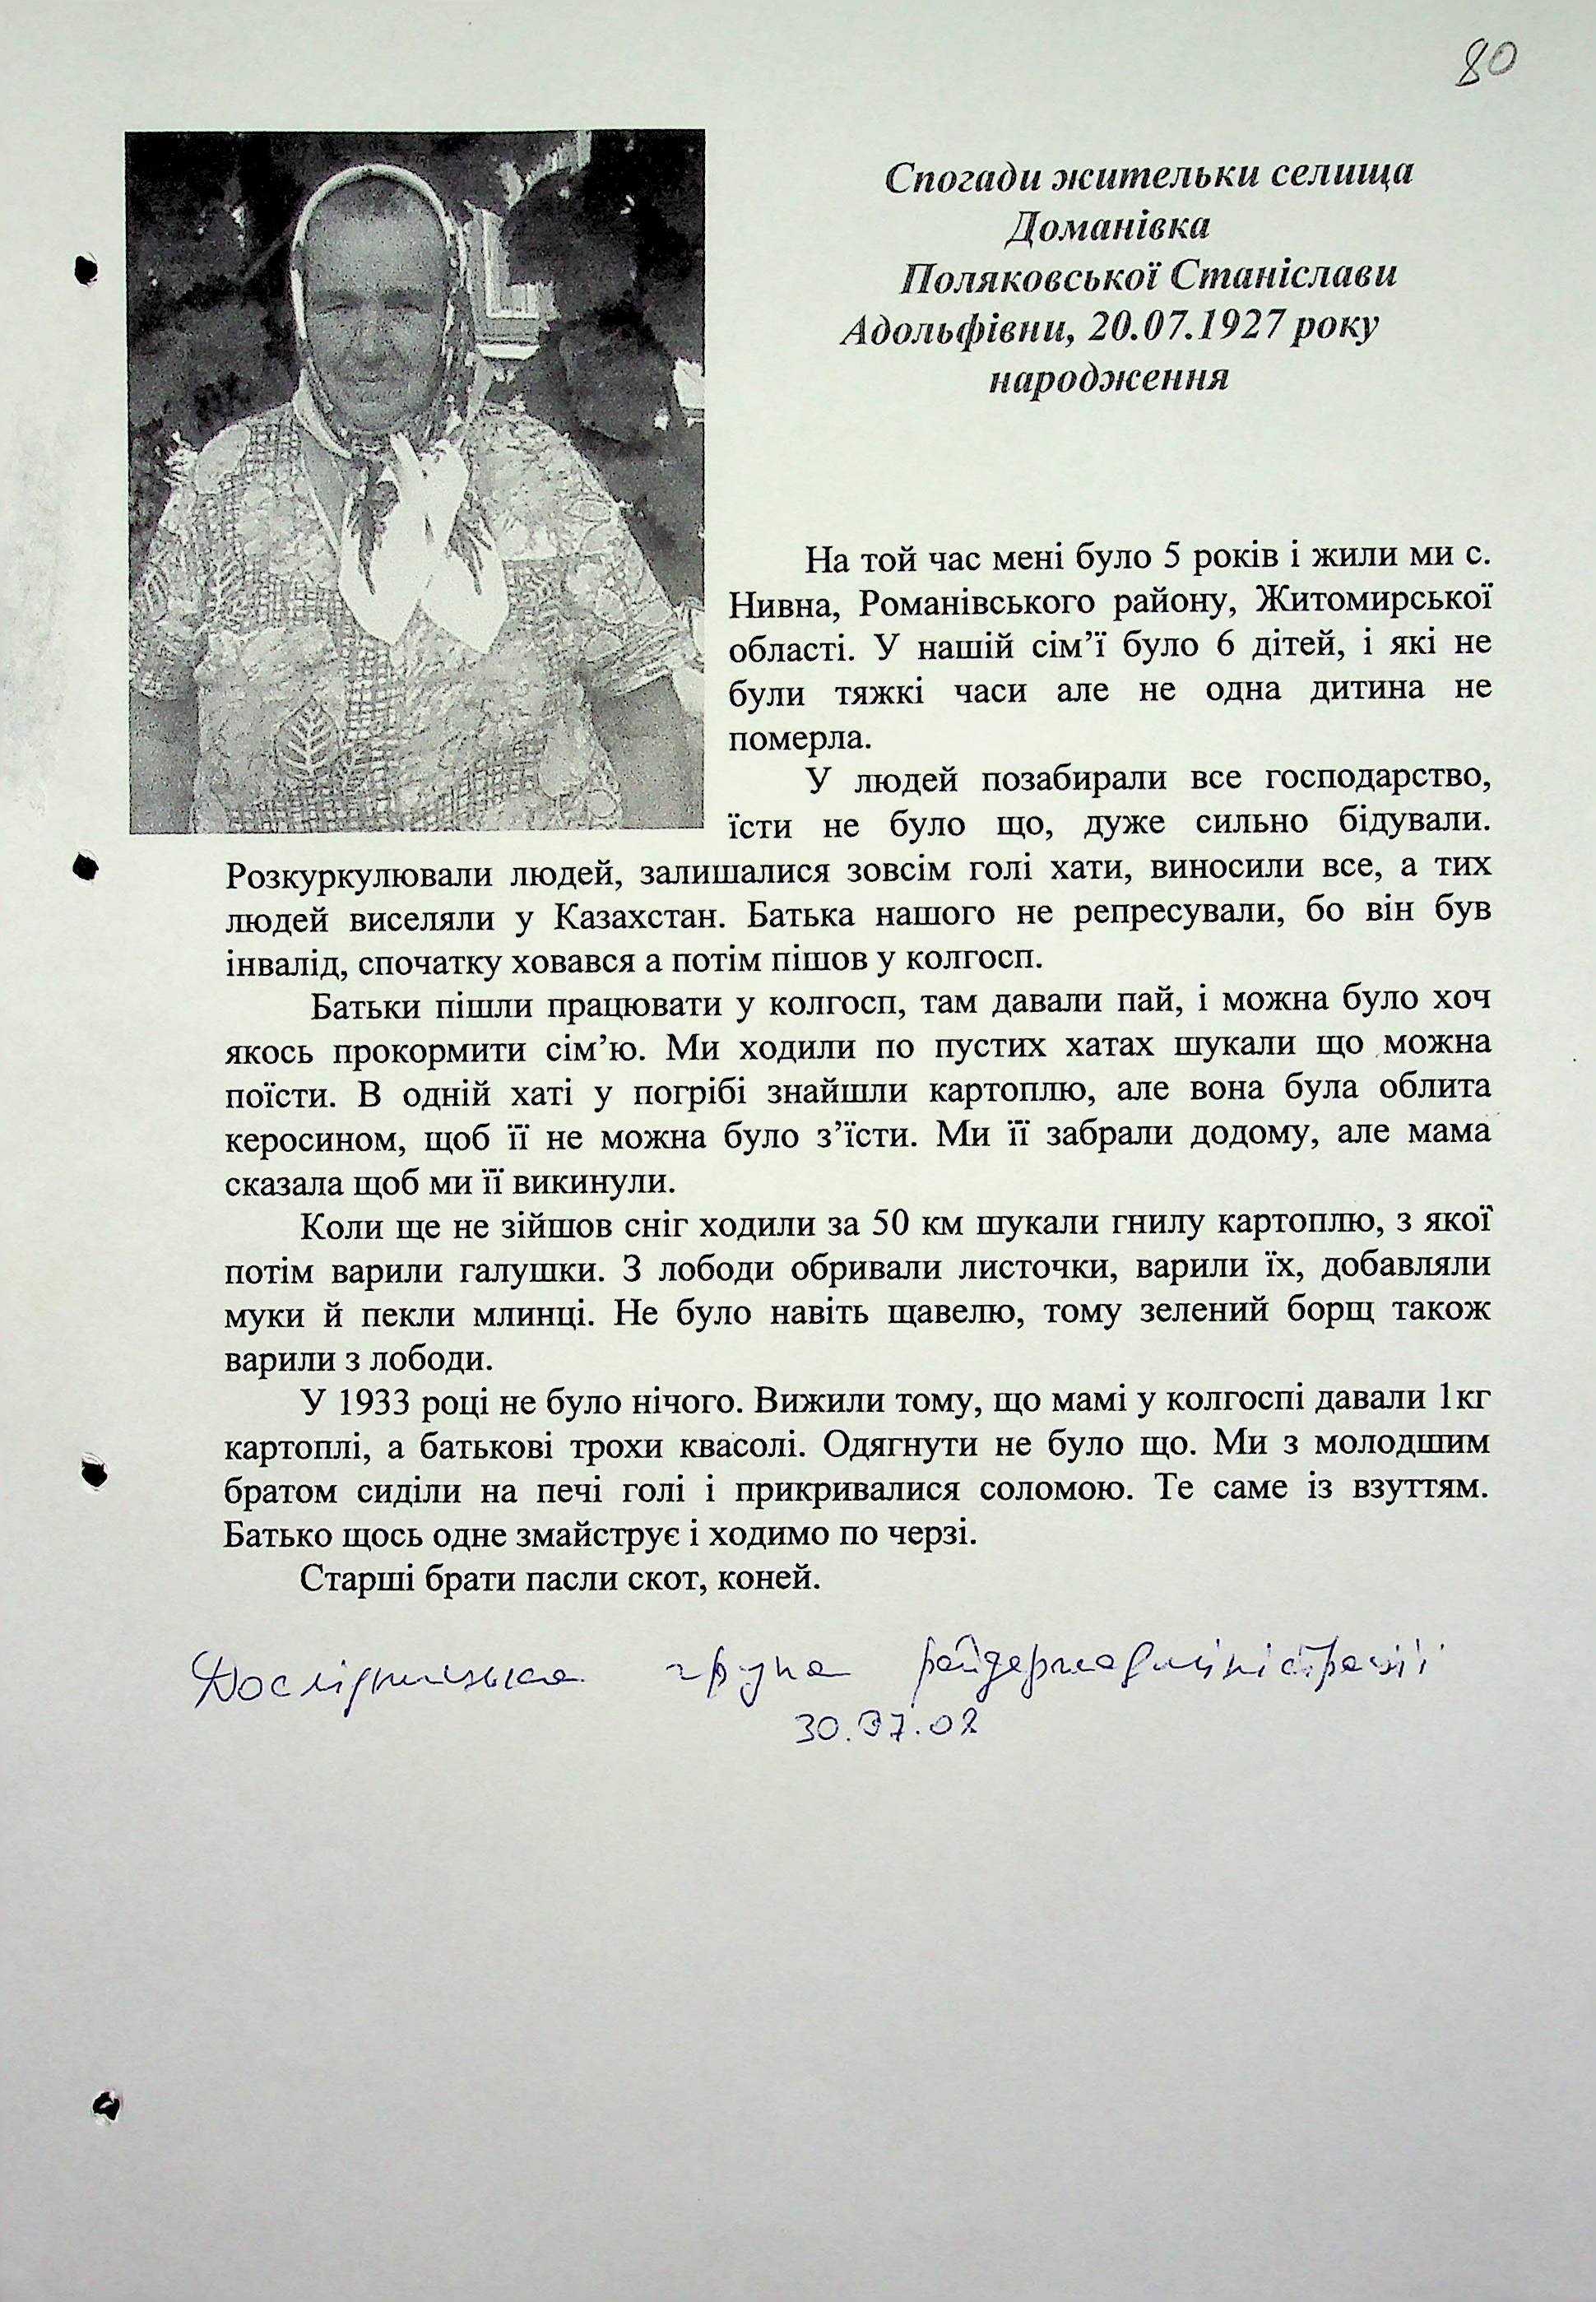 80
Спогади жительки селища
Доманівка
Поляковської Станіслави
Адольфівни, 20.07.1927 року
народження
На той час мені було 5 років і жили ми с.
Нивна, Романівського району, Житомирської
області. У нашій сім’ї було 6 дітей, і які не
були тяжкі часи але не одна дитина не
померла.
У людей позабирали все господарство,
їсти не було що, дуже сильно бідували.
Розкуркулювали людей, залишалися зовсім голі хати, виносили все, а тих
людей виселяли у Казахстан. Батька нашого не репресували, бо він був
інвалід, спочатку ховався а потім пішов у колгосп.
Батьки пішли працювати у колгосп, там давали пай, і можна було хоч
якось прокормити сім’ю. Ми ходили по пустих хатах шукали що можна
поїсти. В одній хаті у погрібі знайшли картоплю, але вона була облита
керосином, щоб її не можна було з’їсти. Ми її забрали додому, але мама
сказала щоб ми її викинули.
Коли ще не зійшов сніг ходили за 50 км шукали гнилу картоплю, з якої
потім варили галушки. З лободи обривали листочки, варили їх, добавляли
муки й пекли млинці. Не було навіть щавелю, тому зелений борщ також
варили з лободи.
У 1933 році не було нічого. Вижили тому, що мамі у колгоспі давали 1кг
картоплі, а батькові трохи квасолі. Одягнути не було що. Ми з молодшим
братом сиділи на печі голі і прикривалися соломою. Те саме із взуттям.
Батько щось одне змайструє і ходимо по черзі.
Старші брати пасли скот, коней.
Дослідницька група райдержадміністрації
30.07.08